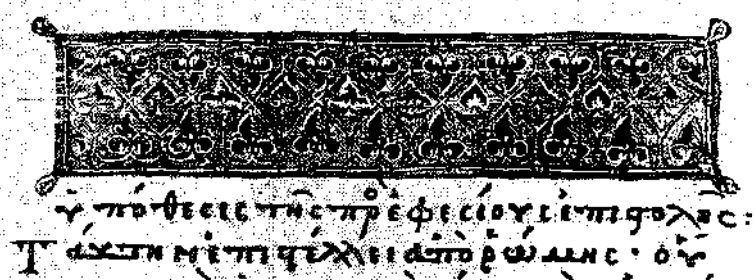 ὑπόθεσις τῆς πρὸ ἐφεσίους ἐπιστολῆς:
Ταύτην ἐπιστέλλει ἀπὸ ῥώμης· οὔ